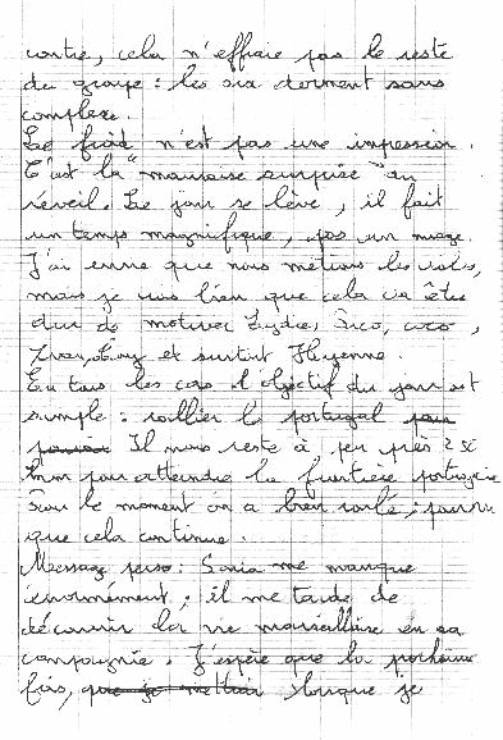 contre, cela n'effraie pas le reste
du groupe : les six dorment sans
complexe.
Le froid n'est pas une impression.
C'est la "mauvaise surprise" au
réveil. Le jour se lève, il fait
un temps magnifique, pas un nuage.
J'ai envie que nous mettions les voiles,
mais je vois bien que cela va être
dur de motiver Lydie, Sico, coco,
et surtout
En tous les cas l'objectif du jour est
simple : rallier le portugal pour
Il nous reste à peu près 250
km pour atteindre la frontière portugaise
Pour le moment on a bien roulé ; pourvu
que cela continue.
Message perso : Sonia me manque
énormément ; il me tarde de
découvrir la vie marseillaise en sa
compagnie. J'espère que la prochaine
fois, que je mettrai lorsque je